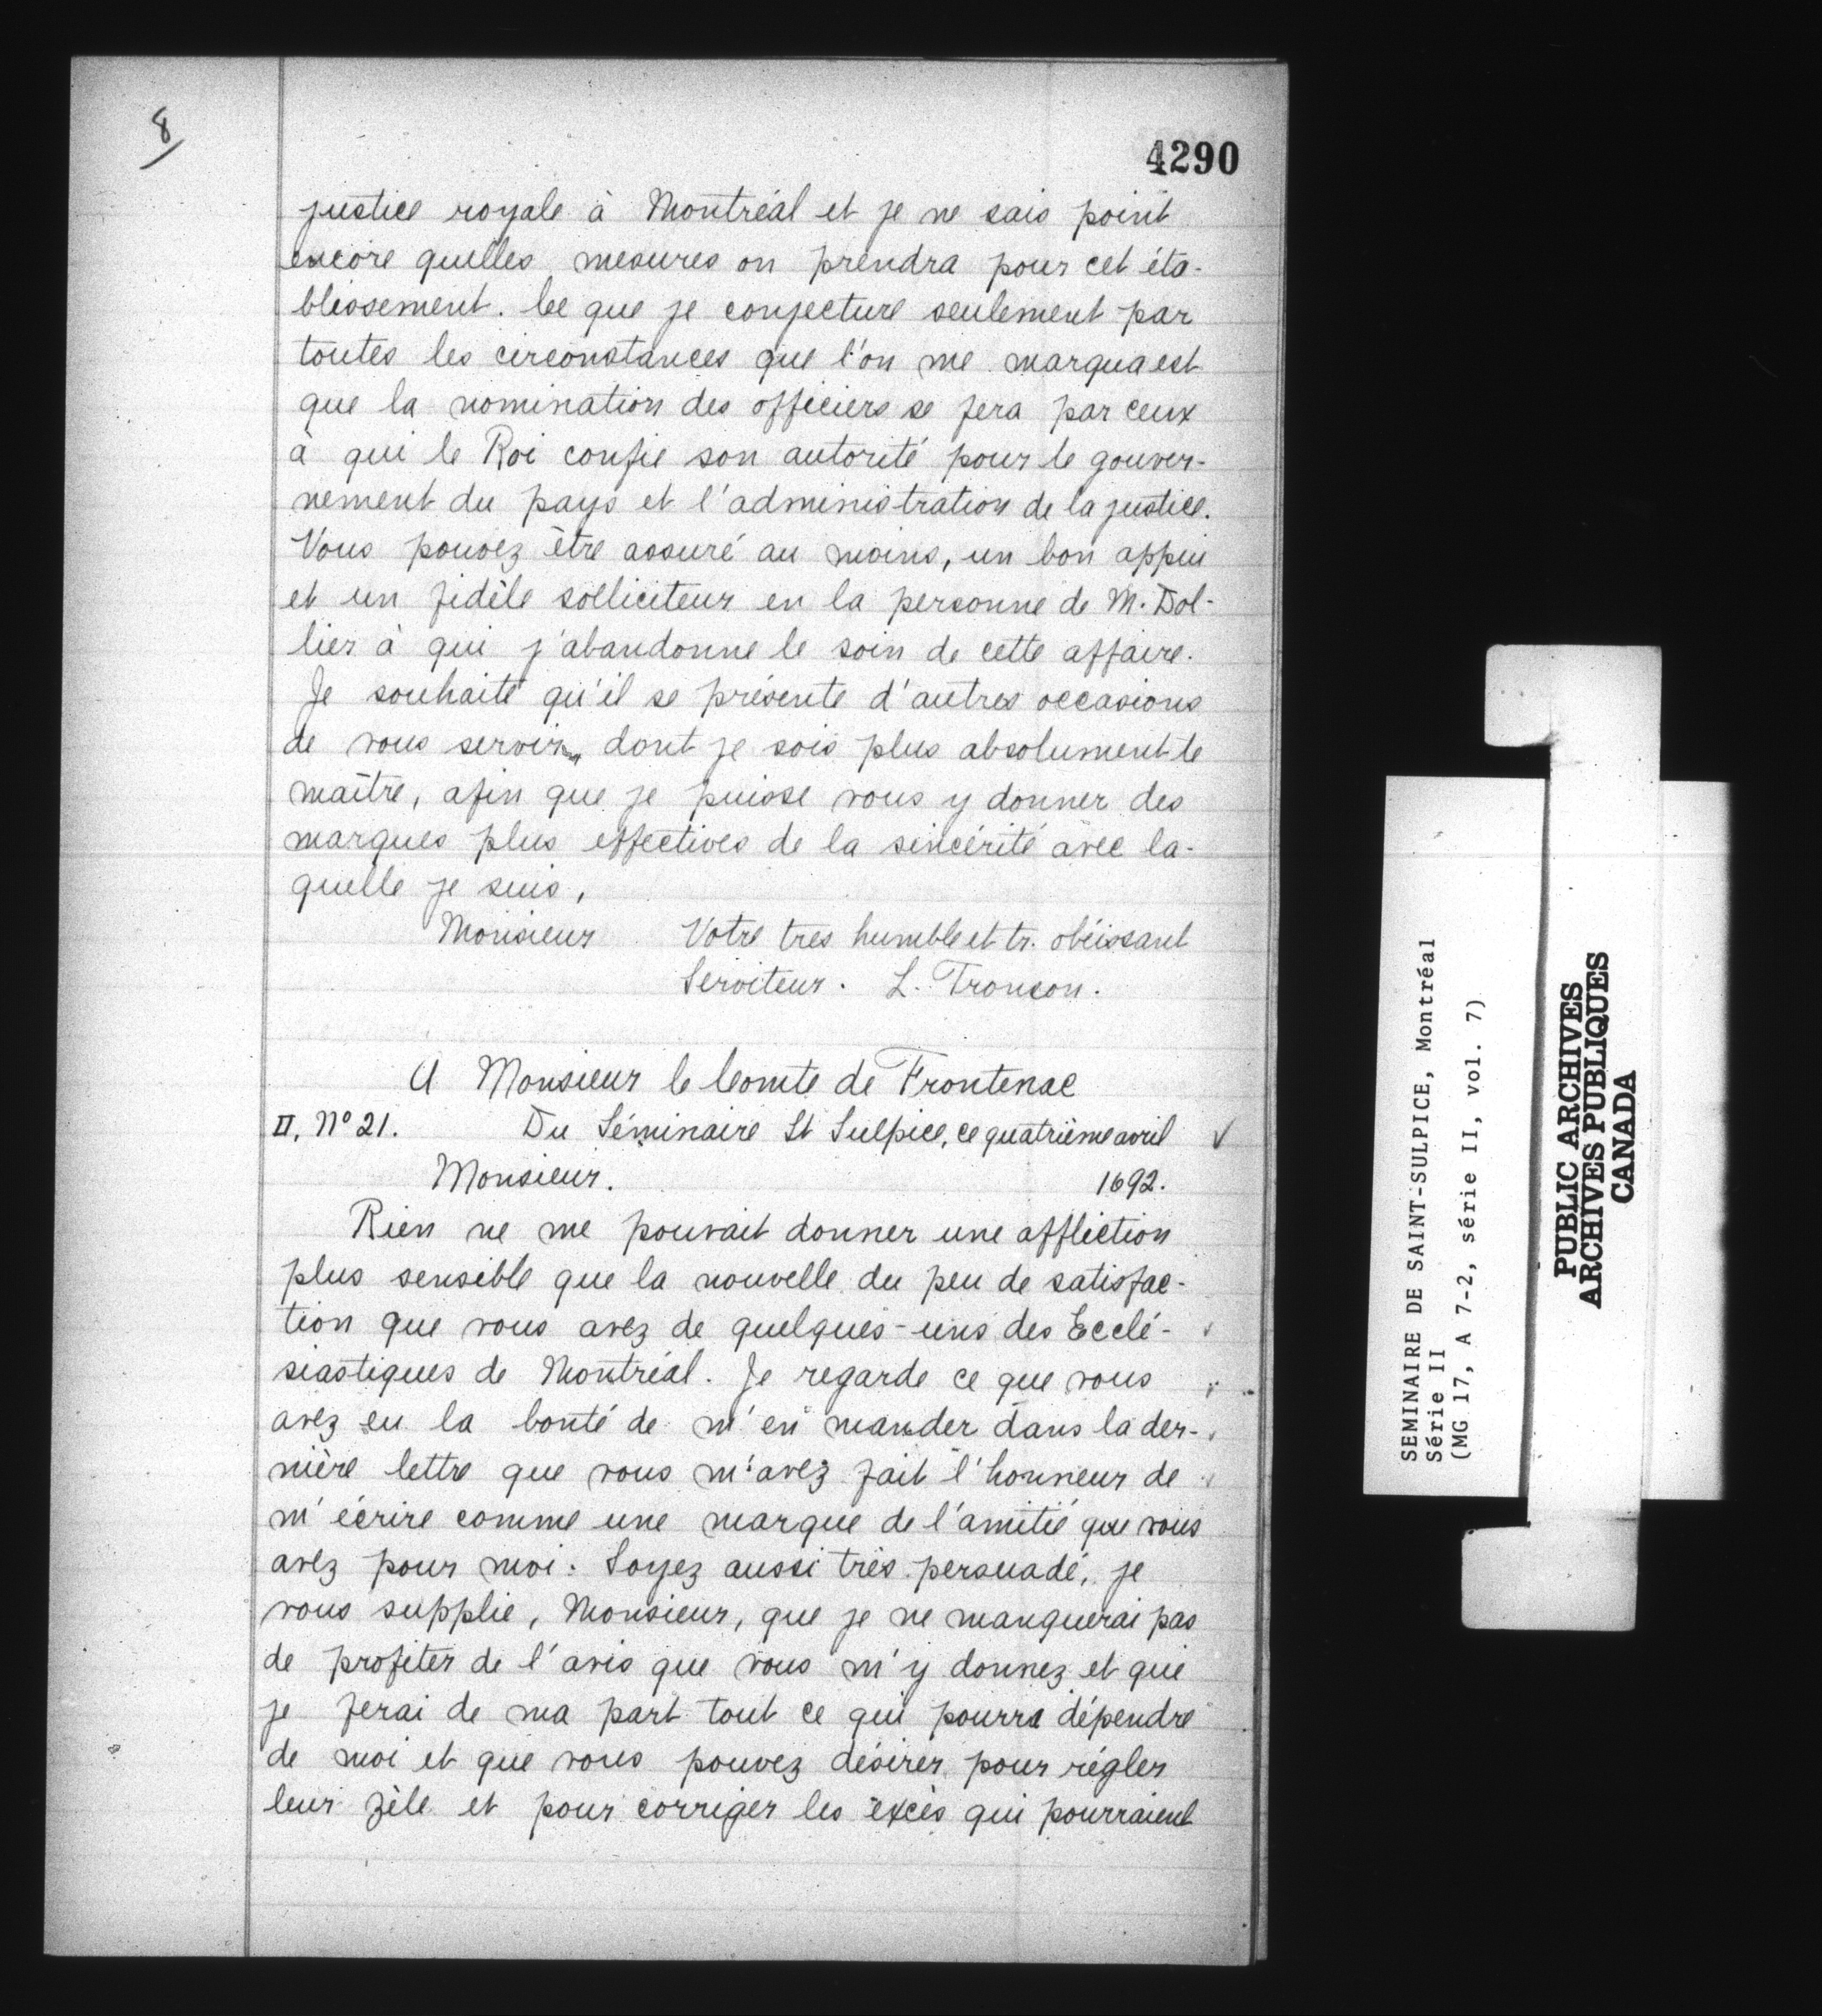 8
4290
justice royale à Montréal et je ne sais point
encore quelles mesures on prendra pour cet éta-
blissement. Ce que je conjecture seulement par
toutes les circonstances que l'on me marqua est
que la nomination des officiers se fera par ceux
à qui le Roi confie son autorité pour le gouver-
nement du pays et l'administration de la justice.
Vous pouvez être assuré au moins, un bon appui
et un fidèle solliciteur en la personne de M. Dol-
lier à qui j'abandonne le soin de cette affaire.
Je souhaite qu'il se présente d'autres occasions
de vous servir, dont je sois plus absolument le
maître, afin que je puisse vous y donner des
marques plus effectives de la sincérité avec la-
quelle je suis,
Monsieur Votre tres humble et tr. obéissant
Serviteur. L. Tronson.
A Monsieur le Comte de Frontenac
II, No 21. Du Séminaire St Sulpice, ce quatrième avril
Monsieur. 1692.
Rien ne me pouvait donner une affliction
plus sensible que la nouvelle du peu de satisfac-
tion que vous avez de quelques-uns des Ecclé-
siastiques de Montréal. Je regarde ce que vous
avez eu la bonté de m'en mander dans la der-
nière lettre que vous m'avez fait l'honneur de
m'écrire comme une marque de l'amitié que vous
avez pour moi. Soyez aussi très persuadé, je
vous supplie, Monsieur, que je ne manquerai pas
de profiter de l'avis que vous m'y donnez et que
je ferai de ma part tout ce qui pourra dépendre
de moi et que vous pouvez désirer pour régler
leur zèle et pour corriger les excès qui pourraient
SEMINAIRE DE SAINT-SULPICE, Montréal
Série II
(MG 17, A 7-2, série II, vol. 7)
PUBLIC ARCHIVES
ARCHIVES PUBLIQUES
CANADA